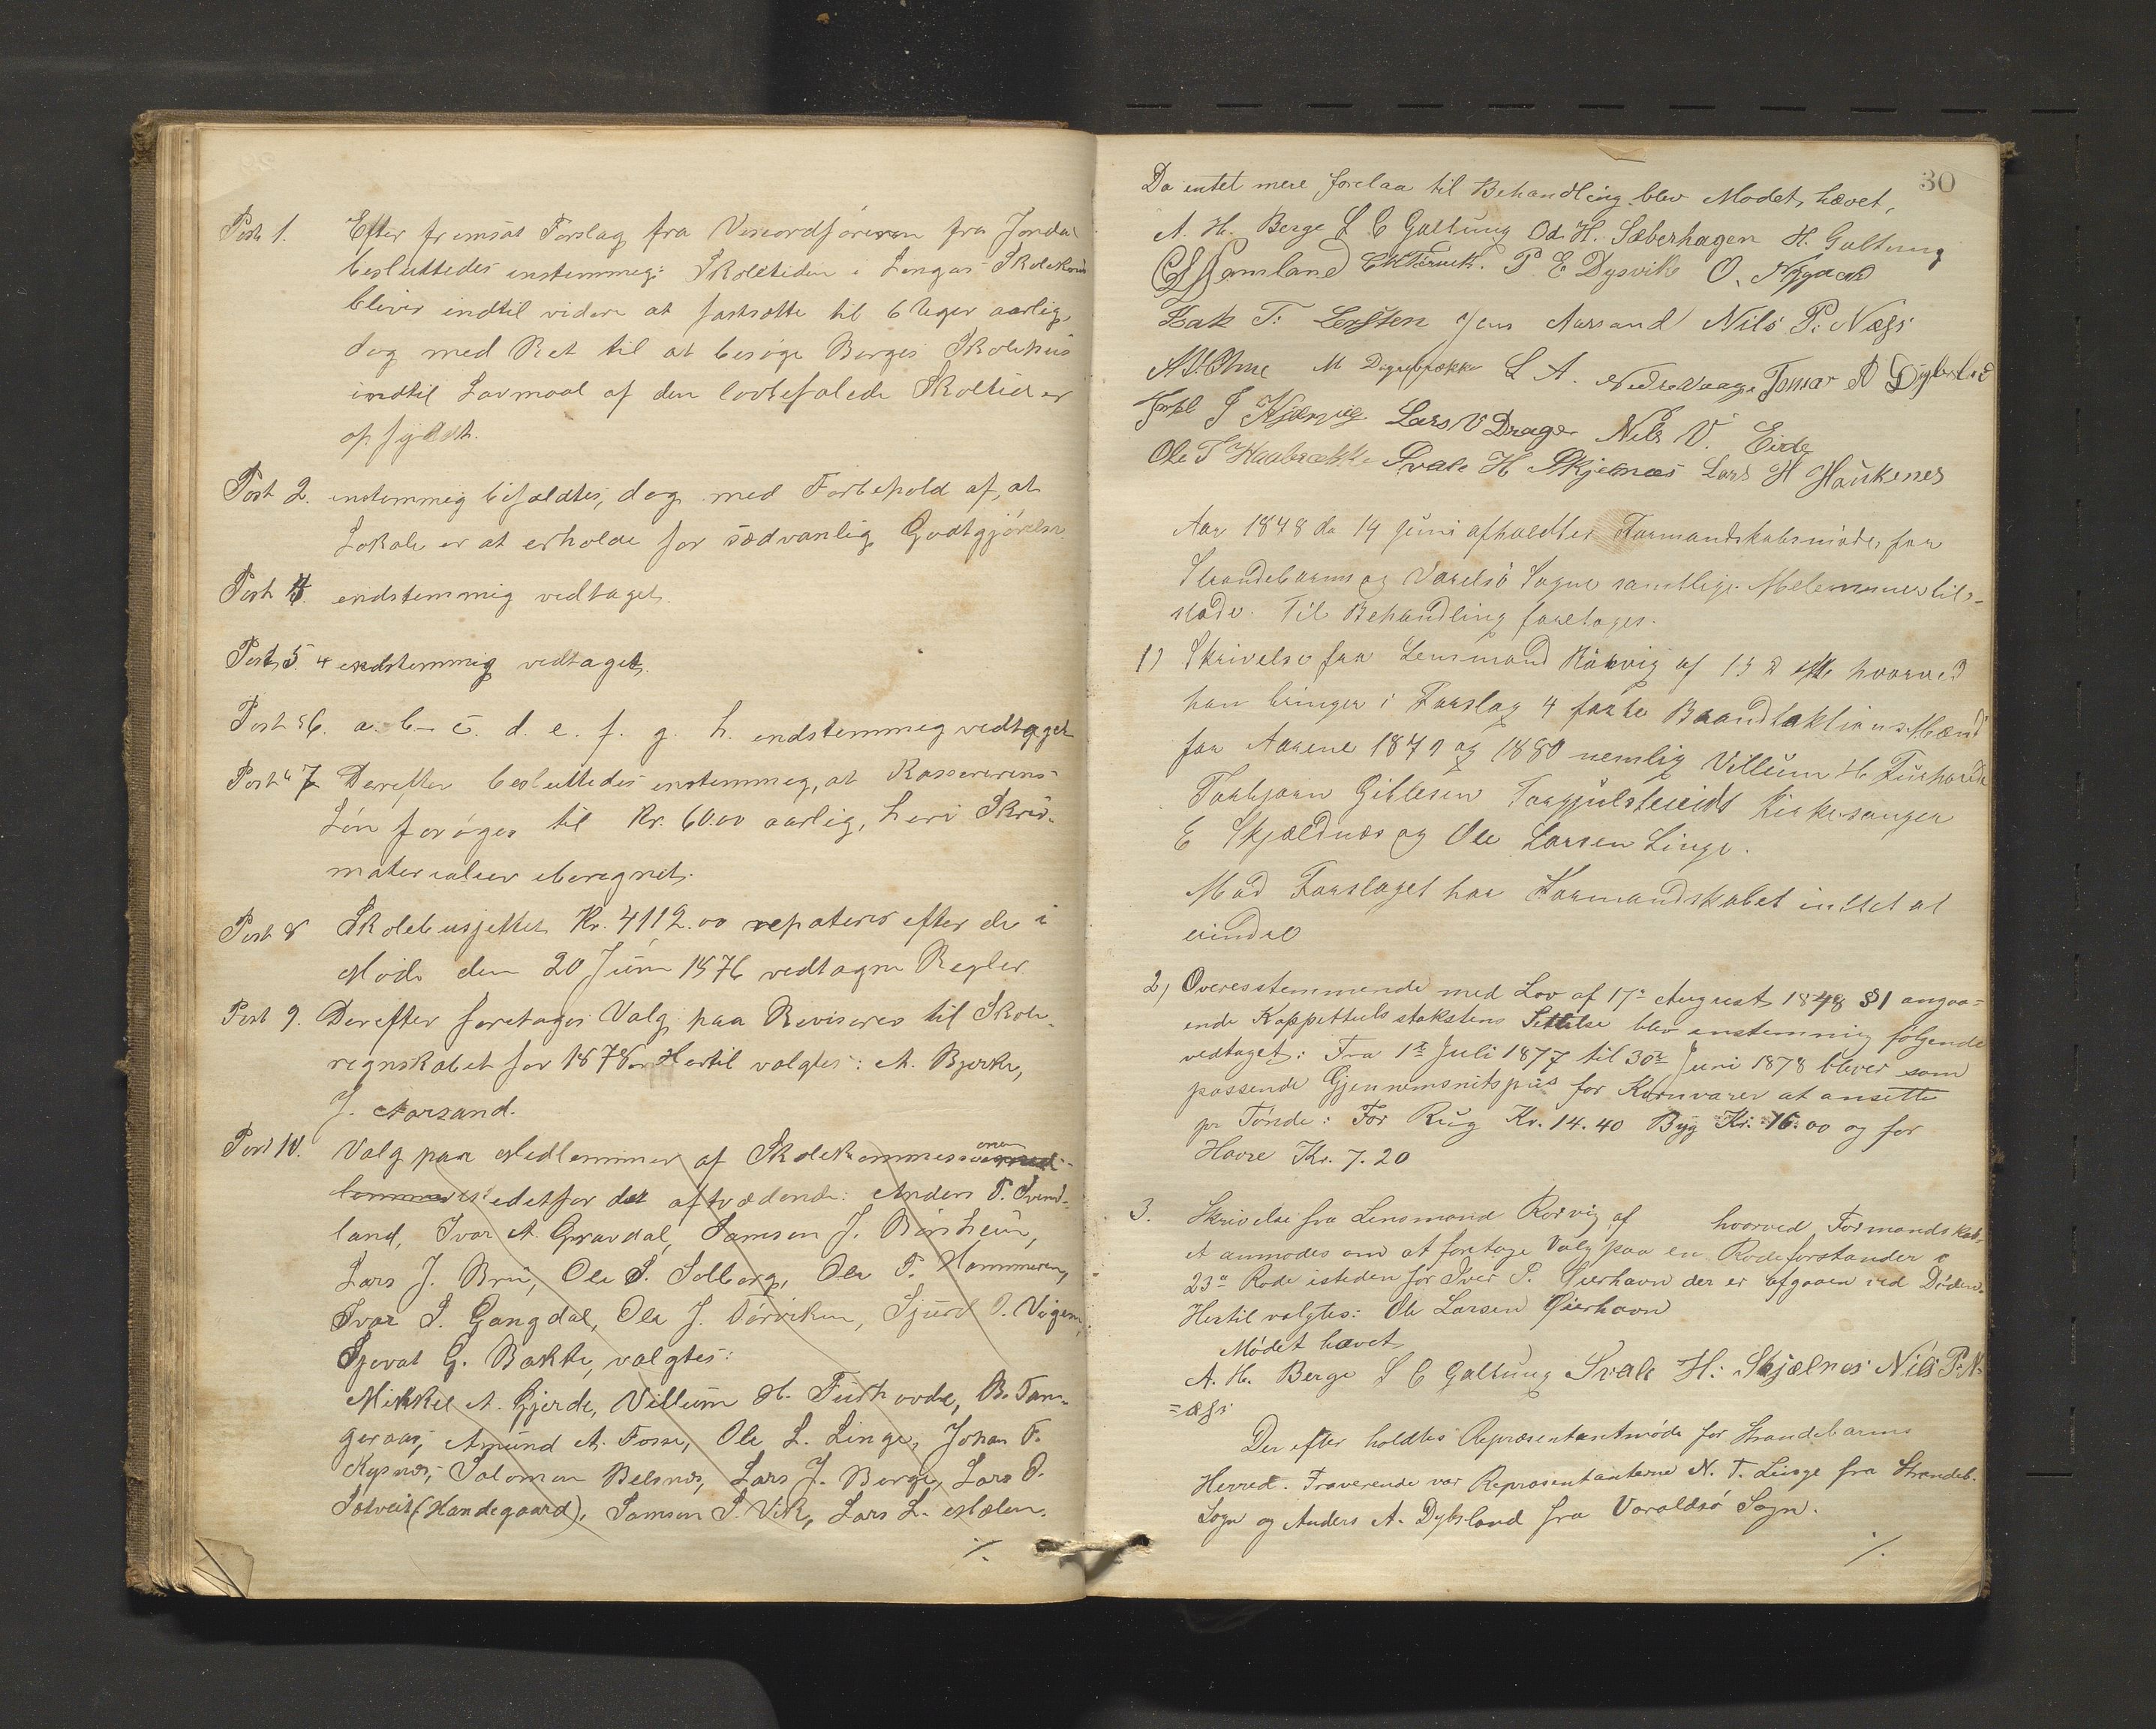 Post 1. Efter fremsat Forslag fra Viseordføreren fra Jondal
besluttedes enstemmig: Skoletiden i Lingas Skolekreds
bliver indtil videre at fastsætte til 6 Uger aarlig,
dog med Ret til at besøge Berges Skolehus
indtil Lavmaal af den lovbefalede Skoletid er
opfyldt.
Post 2. enstemmig bifaldtes, dog med Forbehold af, at
Lokale er at erholde for sædvanlig Godtgjørelse
Post 4. endstemmig vedtaget.
Post 5. 4 endstemmig vedtaget.
Post 6. a. b. c. d. e. f. g. h. endstemmig vedtaget
Post 7 Derefter besluttedes enstemmig, at Kassererens
Løn forøges til Kr. 60.00 aarlig, heri Skriv-
materialier iberegnet.
Post 8 Skolebusjettet Kr. 4112.00 repateres efter de i
Møde den 20 Juni 1876 vedtagne Regler.
Post 9. Derefter foretages Valg paa Revisorer til Skole-
regnskabet for 1878. Hertil valgtes: A. Bjerke,
J. Aarsand.
Post 10. Valg paa Medlemmer af Skolekommissionen
istedetfor de aftrædende: Anders T. Svend-
land, Ivar A. Gravdal, Samson J. Børsheim,
Lars J. Bru, Ole S. Solberg, Ole T. Hammeren,
Ivar S. Gangdal, Ole J. Tørviken, Sjurd O. Vigen,
Sjovat G. Bakke, valgtes:
Mikkel A. Gjerde, Villum H. Furhovde, B. Tan-
geraas, Amund A. Fosse, Ole L. Linge, Johan T.
Kysnes, Salomon Belsnes, Lars J. Berge, Lars O.
Solveit (Handegaard), Samson S. Vik, Lars L. Mælen.
./.
30
Da intet mere forelaa til Behandling blev Mødet hævet,
A. H. Berge L C Galtung Od. H. Sæberhagen H. Galtung
Samland P. E Dysvik O. Nygaard
Isak T. Jens Aarsand Nils P. Næss
M Dogrebrække L A. Nedrevaage Tomas A Dybsland
J Kjærvig Lars V Drage Nils V. Eide
Ole T Haabrække Svale H Skjelnæs Lars H Haukenes
Aar 1878 den 14 Juni afholdtes Formandskabsmøde for
Strandebarms og Varelsö Sogne samtlige Melemmer til-
stede. Til Behandling foretoges.
1) Skrivelse fra Lensmand Rörvig af 13 d hvorved
han bringer i Forslag 4 faste Brandtaktionsmænd
for Aarene 1879 og 1880 nemlig Villum H Furhovde
Torbjørn Giblesen Torgjulsteeidt Kirkesanger
E Skjældnæs og Ole Larsen Linge.
Mod Forslaget har Formandskabet intet at
erindre
2) Overesstemmende med Lov af 17de August 1848 §1 angaa-
ende Kappettels stakstens Settelse blev enstemmig følgende
vedtaget: Fra 1ste Juli 1877 til 30te Juni 1878 bliver som
passende Gjennemsnitspris for Kornvarer at ansette
pr Tønde: For Rug Kr. 14.40 Byg Kr. 16.00 og for
Havre Kr. 7.20
3. Skrivelse fra Lensmand Rørvig af hvorved Formandskab-
et anmodes om at foretage Valg paa en Rodeforstander i
23de Rode isteden for Iver P. Gierhavn der er afgaaen ved Døden.
Hertil valgtes: Ole Larsen Gierhavn
Mødet hævet
A. H. Berge L C Galtung Svale H: Skjælnes Nils P. N-
=æss
Derefter holdtes Repræsentantmøde for Strandebarms
Herred. Fraverende var Repræsentanterne N. T. Linge fra Strandeb.
Sogn og Anders A. Dybsland fra Varaldsø Sogn.
./.